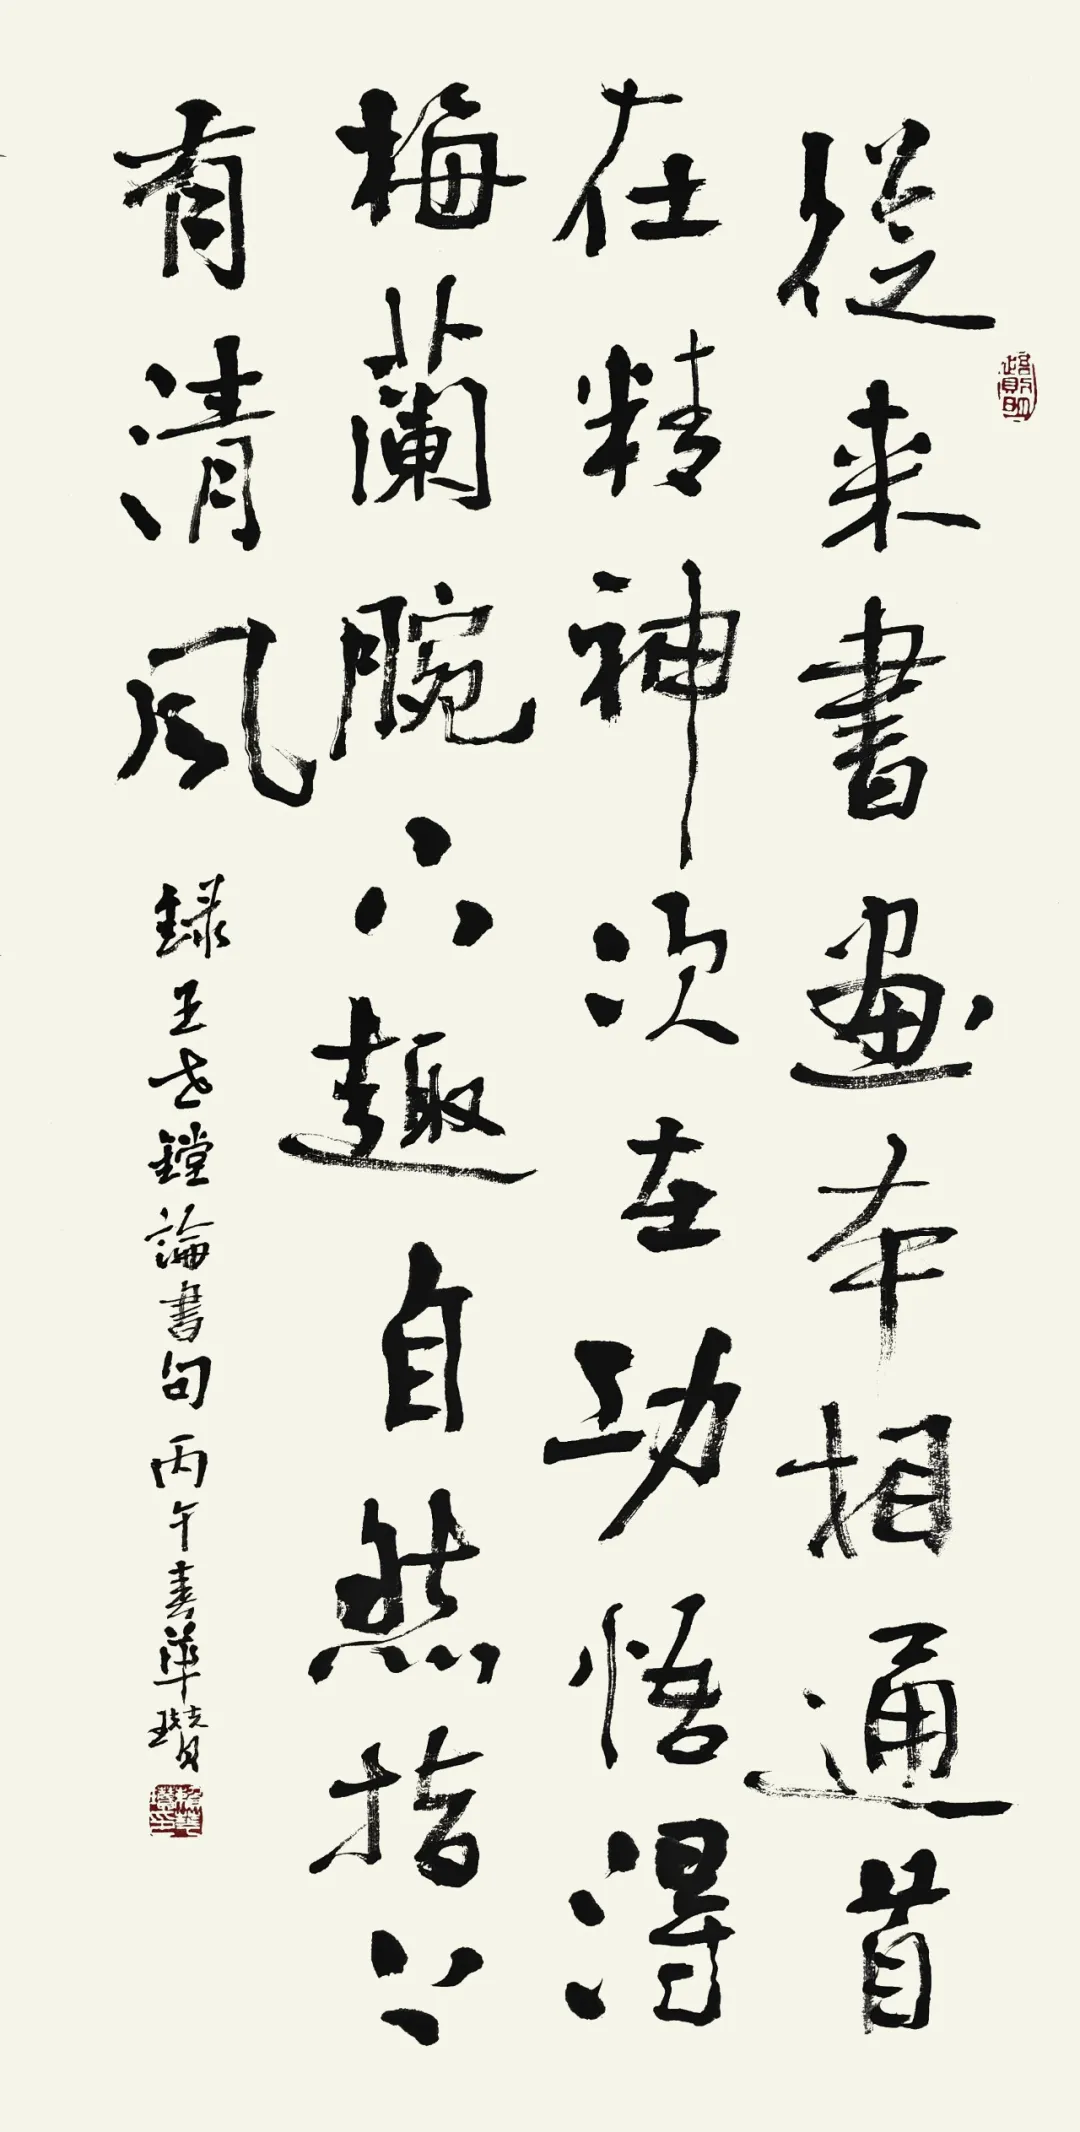 從来書畫本相通首
在精神次在功悟得
梅蘭腕下趣自然指上
有清風
録王世鏜論書句丙午春華瓚